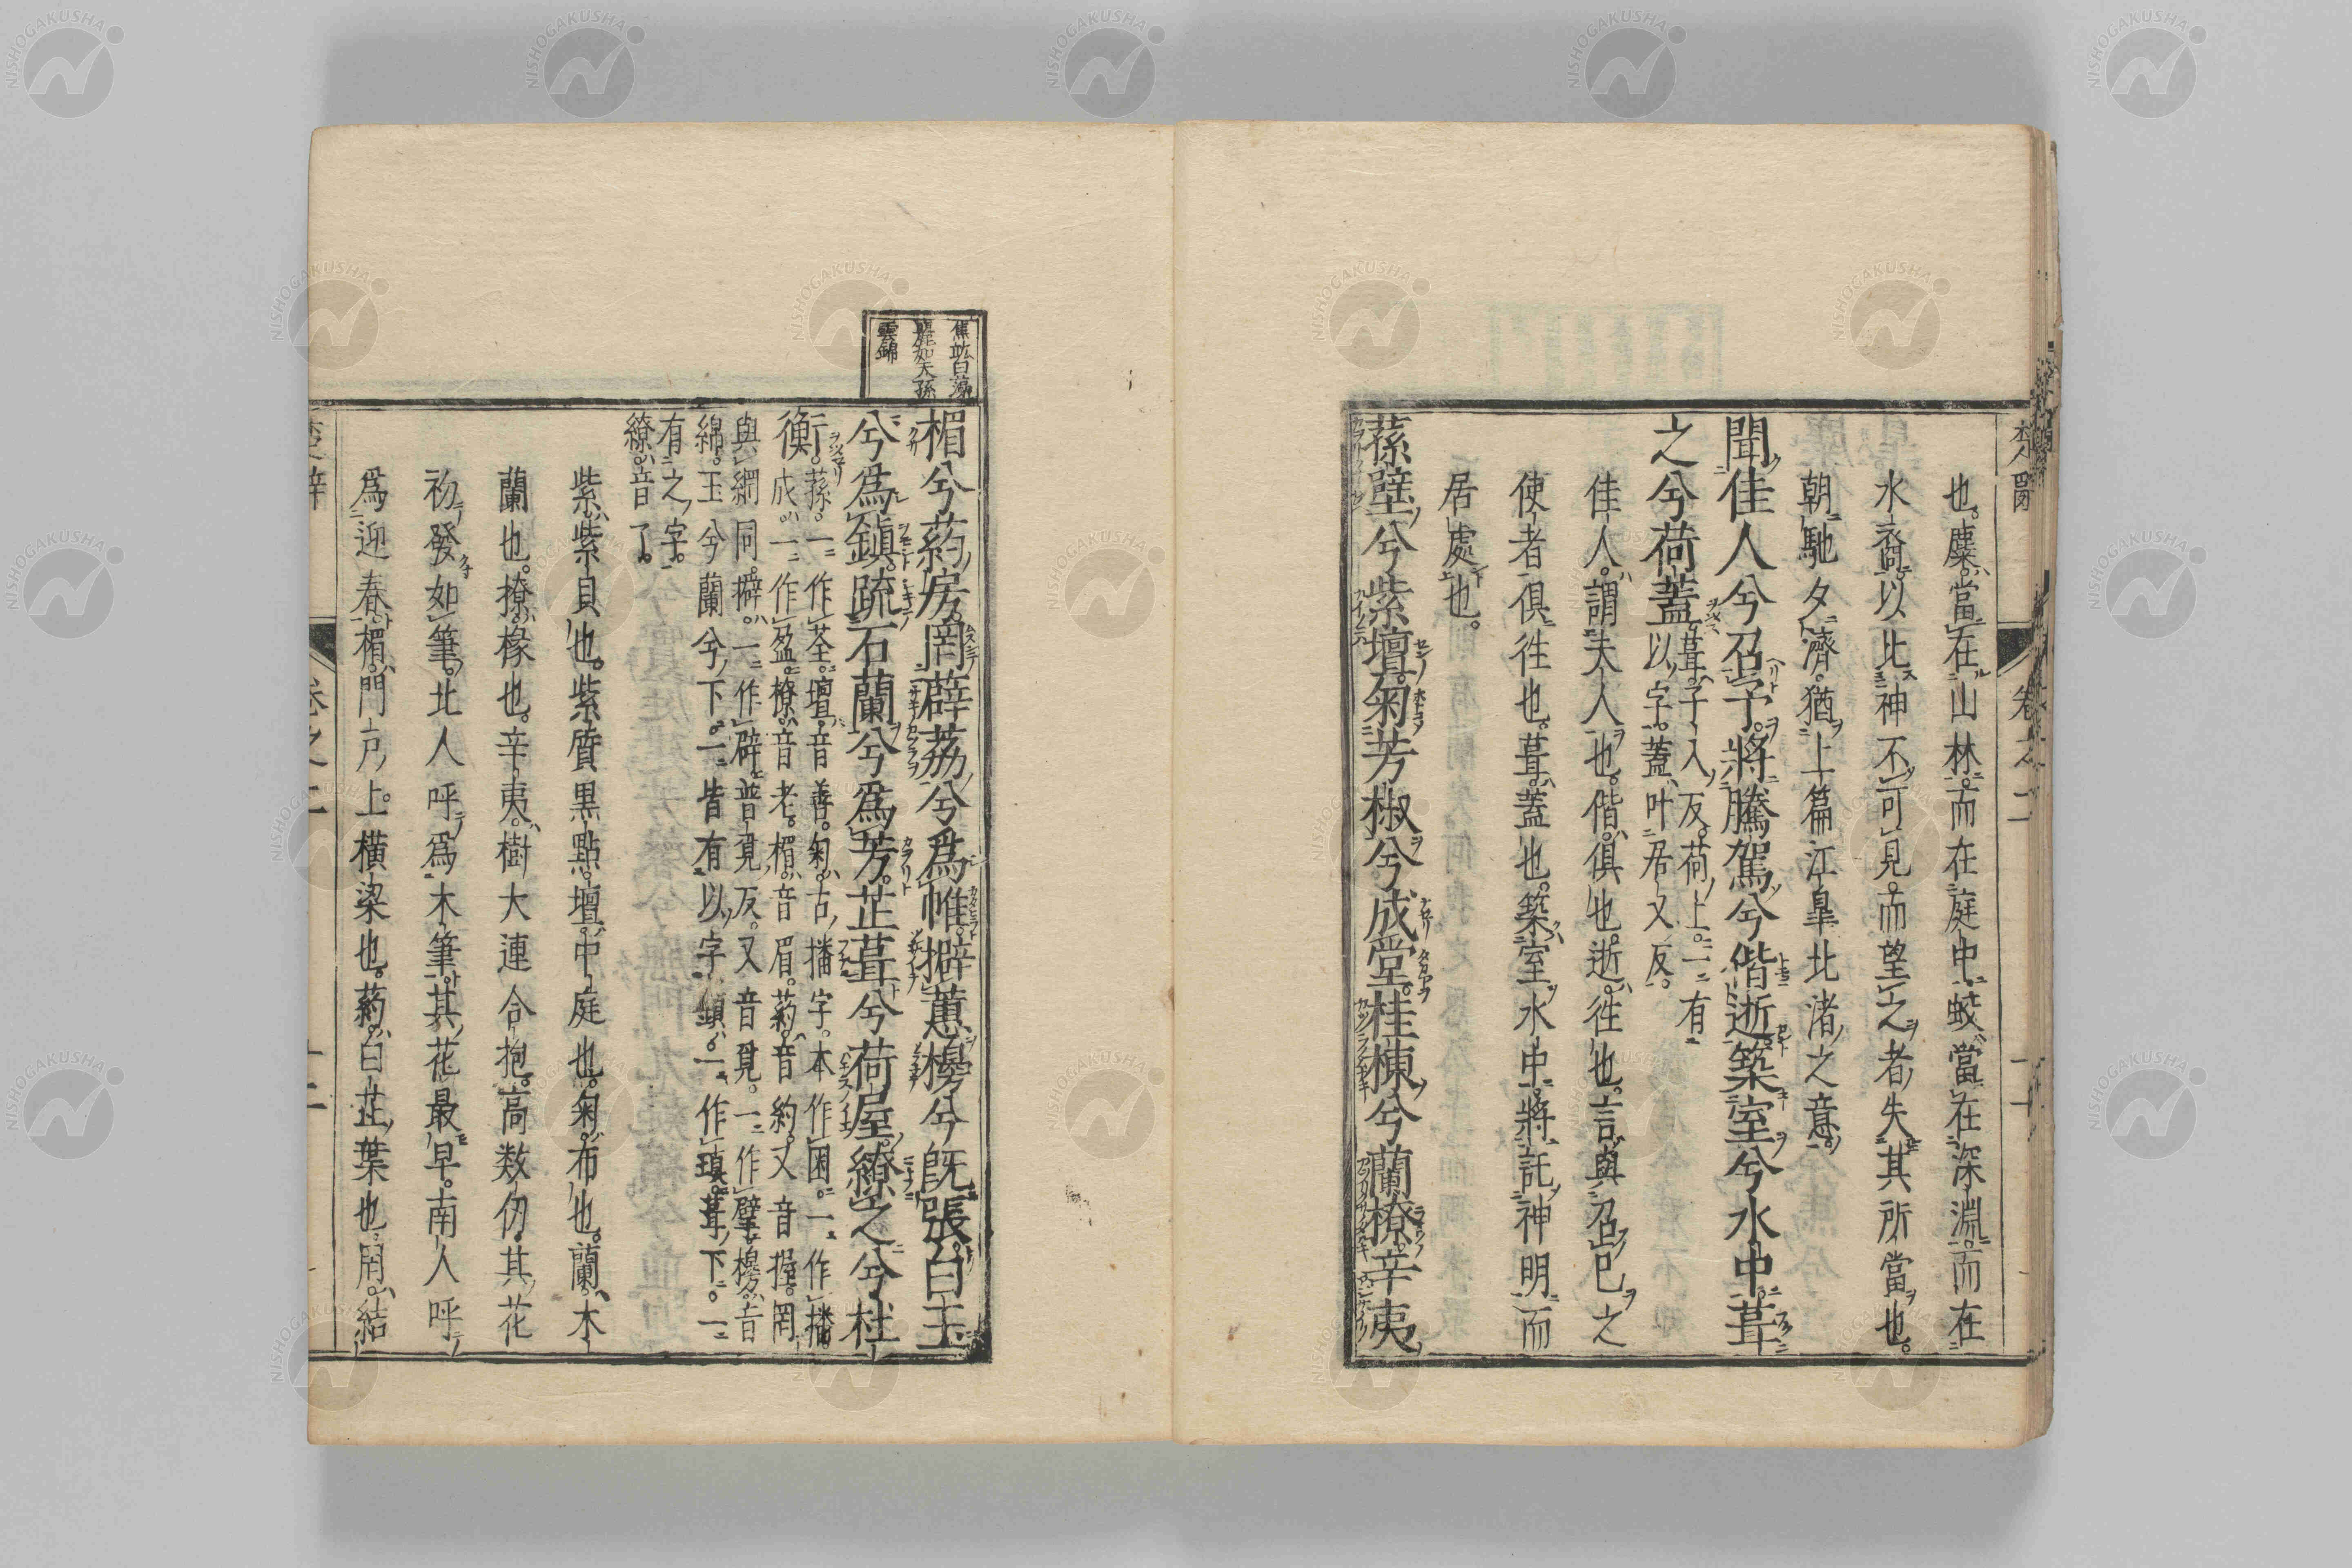 楚辭 卷之二 十一
也。麋。當在山林。而在庭中。蛟當在深淵。而在
水裔。以比神不可見。而望之者失其所當也。
朝馳夕濟。猶上篇江皐北渚之意。
聞佳人兮召予。將騰駕兮偕逝。築室兮水中。葺
之兮荷蓋。葺。子入反。荷上。一有
以字。蓋叶居又反。
佳人。謂夫人也。偕。俱也。逝。徃也。言與召己之
使者俱徃也。葺。蓋也。築室水中。將託神明而
居處也。
蓀壁兮紫壇。菊芳椒兮成堂。桂棟兮蘭橑。辛夷
焦竑曰藻
麗如天孫
雲錦
楣兮葯房。罔薜荔兮爲帷。擗蕙櫋兮旣張。白玉
兮爲鎭。疏石蘭兮爲芳。芷葺兮荷屋。繚之兮杜
衡。蓀。一作荃。壇音善。匊。古播字。本作𡇈。一作播。
成。一作盈。橑音老。楣。音眉。葯。音約。又音握。罔
與網同。擗。一作薜。普覓反。又音覓。一作擘。櫋音
綿。玉兮蘭兮下。一皆有以字。鎭。一作瑱。葺下。一
有之字。
繚。音了。
紫。紫貝也。紫質黒點。壇。中庭也。匊。布也。蘭。木
蘭也。橑。椽也。辛夷。樹大連合抱。高數仞。其花
初發如筆。北人呼爲木筆。其花最早。南人呼
爲迎春。楣。門戸上橫梁也。葯。白芷葉也。罔。結
楚辭 卷之二 十二